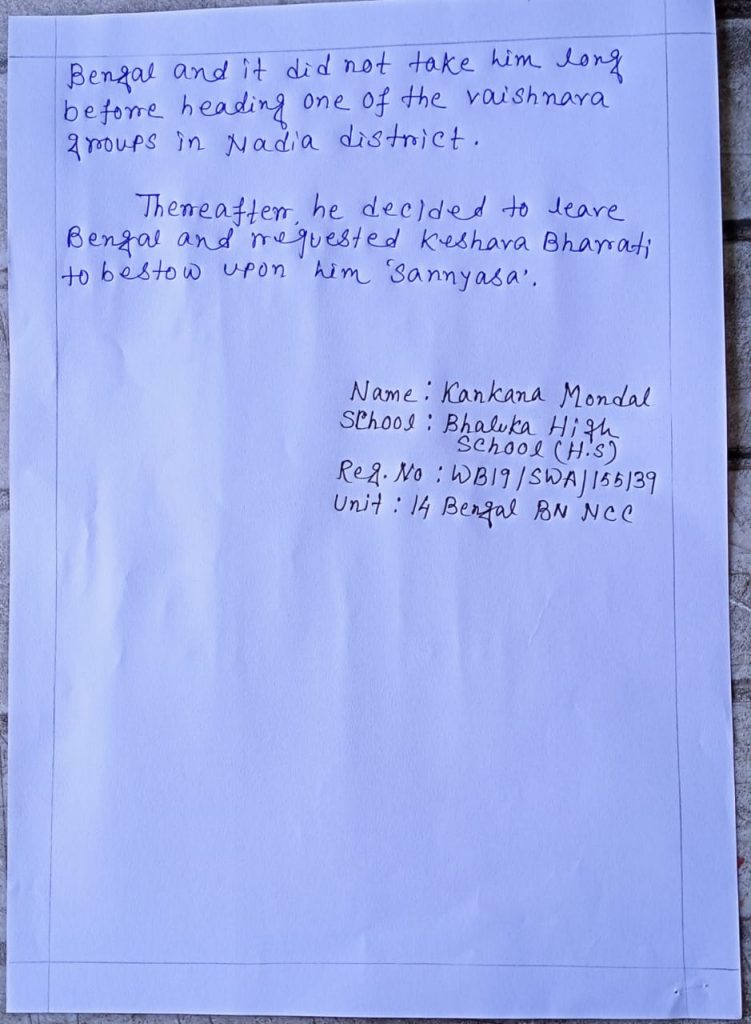 Bengal and it did not take him long
before heading one of the vaishnava
groups in Nadia district.
Thereafter, he decided to leave
Bengal and requested Keshava Bharati
to bestow upon him 'sannyasa'.
Name : Kankana Mondal
School : Bhaluka High
School (H.S)
Reg. No : WB19/SWA/155139
Unit : 14 Bengal BN NCC